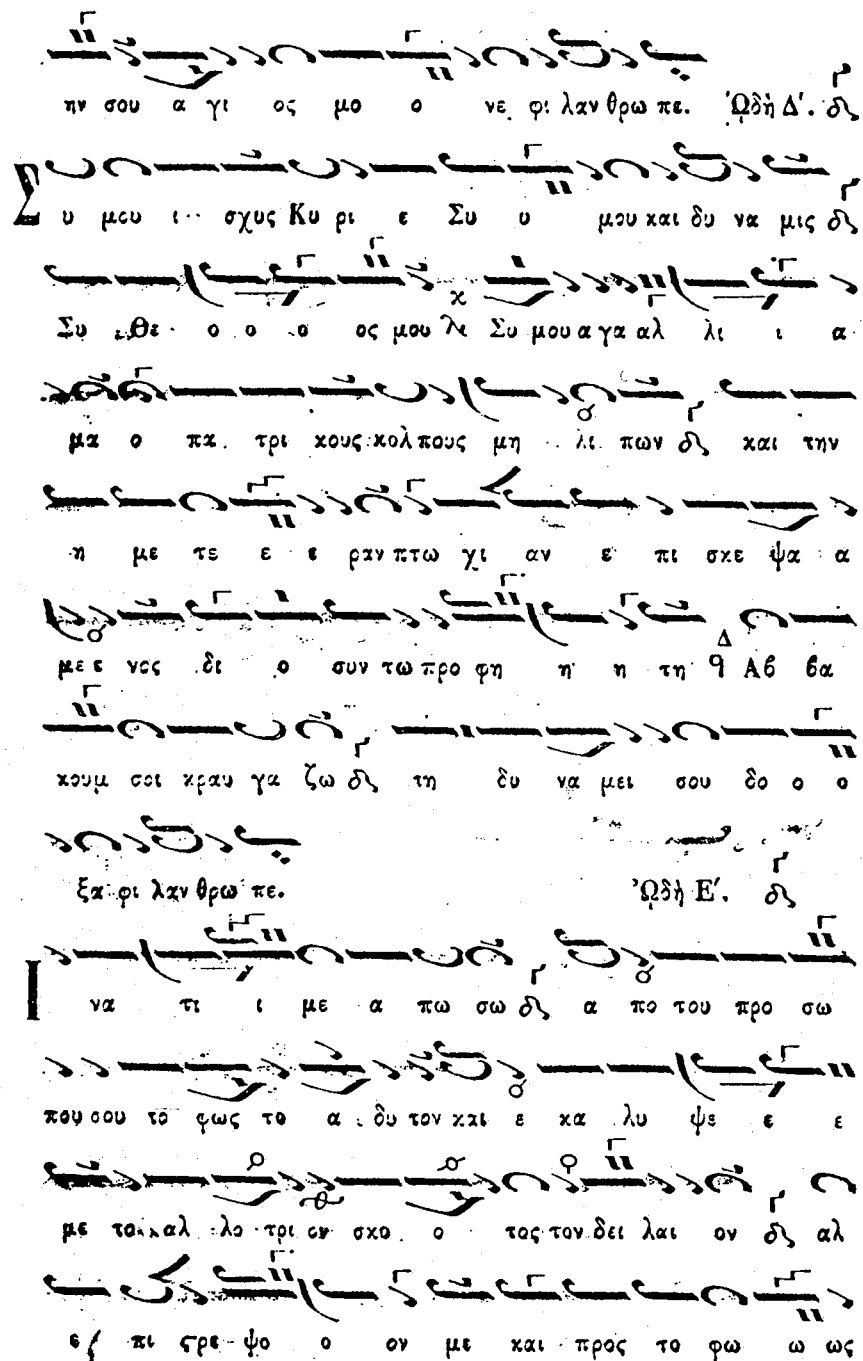 ην σου α γι ος μο ο νε φι λαν θρω πε. Ὠδὴ Δ΄.
Συ μου ι σχυς Κυ ρι ε Συ υ μου και δυ να μις
Συ Θε ο ο ο ος μου Συ μου α γα αλ λι ι α
μα ο πα τρι κους κολ πους μη λι πων και την
η με τε ε ε ραν πτω χι αν ε πι σκε ψα α
με ε νος δι ο συν τω προ φη η η τη Αβ βα
κουμ σοι κραυ γα ζω τη δυ να μει σου δο ο ο
ξα φι λαν θρω πε. Ὠδὴ Ε΄.
Ι να τι ι με α πω σω α πο του προ σω
που σου το φως το α δυ τον και ε κα λυ ψε ε ε
με το αλ λο τρι ον σκο ο τος τον δει λαι ον αλ
ε πι ςρε ψο ο ον με και προς το φω ω ως